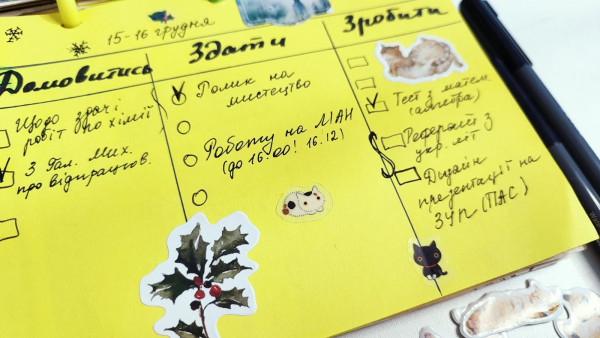 15-16 грудня
Домовитись
Щодо здачі
робіт по хімії
З Гал. Мих.
про відпрацюв.
Здати
Ролик на
мистецтво
Роботу на МАН
(до 16:00! 16.12)
Зробити
Тест з матем.
(алгебра)
Реферат з
укр. літ
Дизайн
презентації на
ЗУП (ПАС)